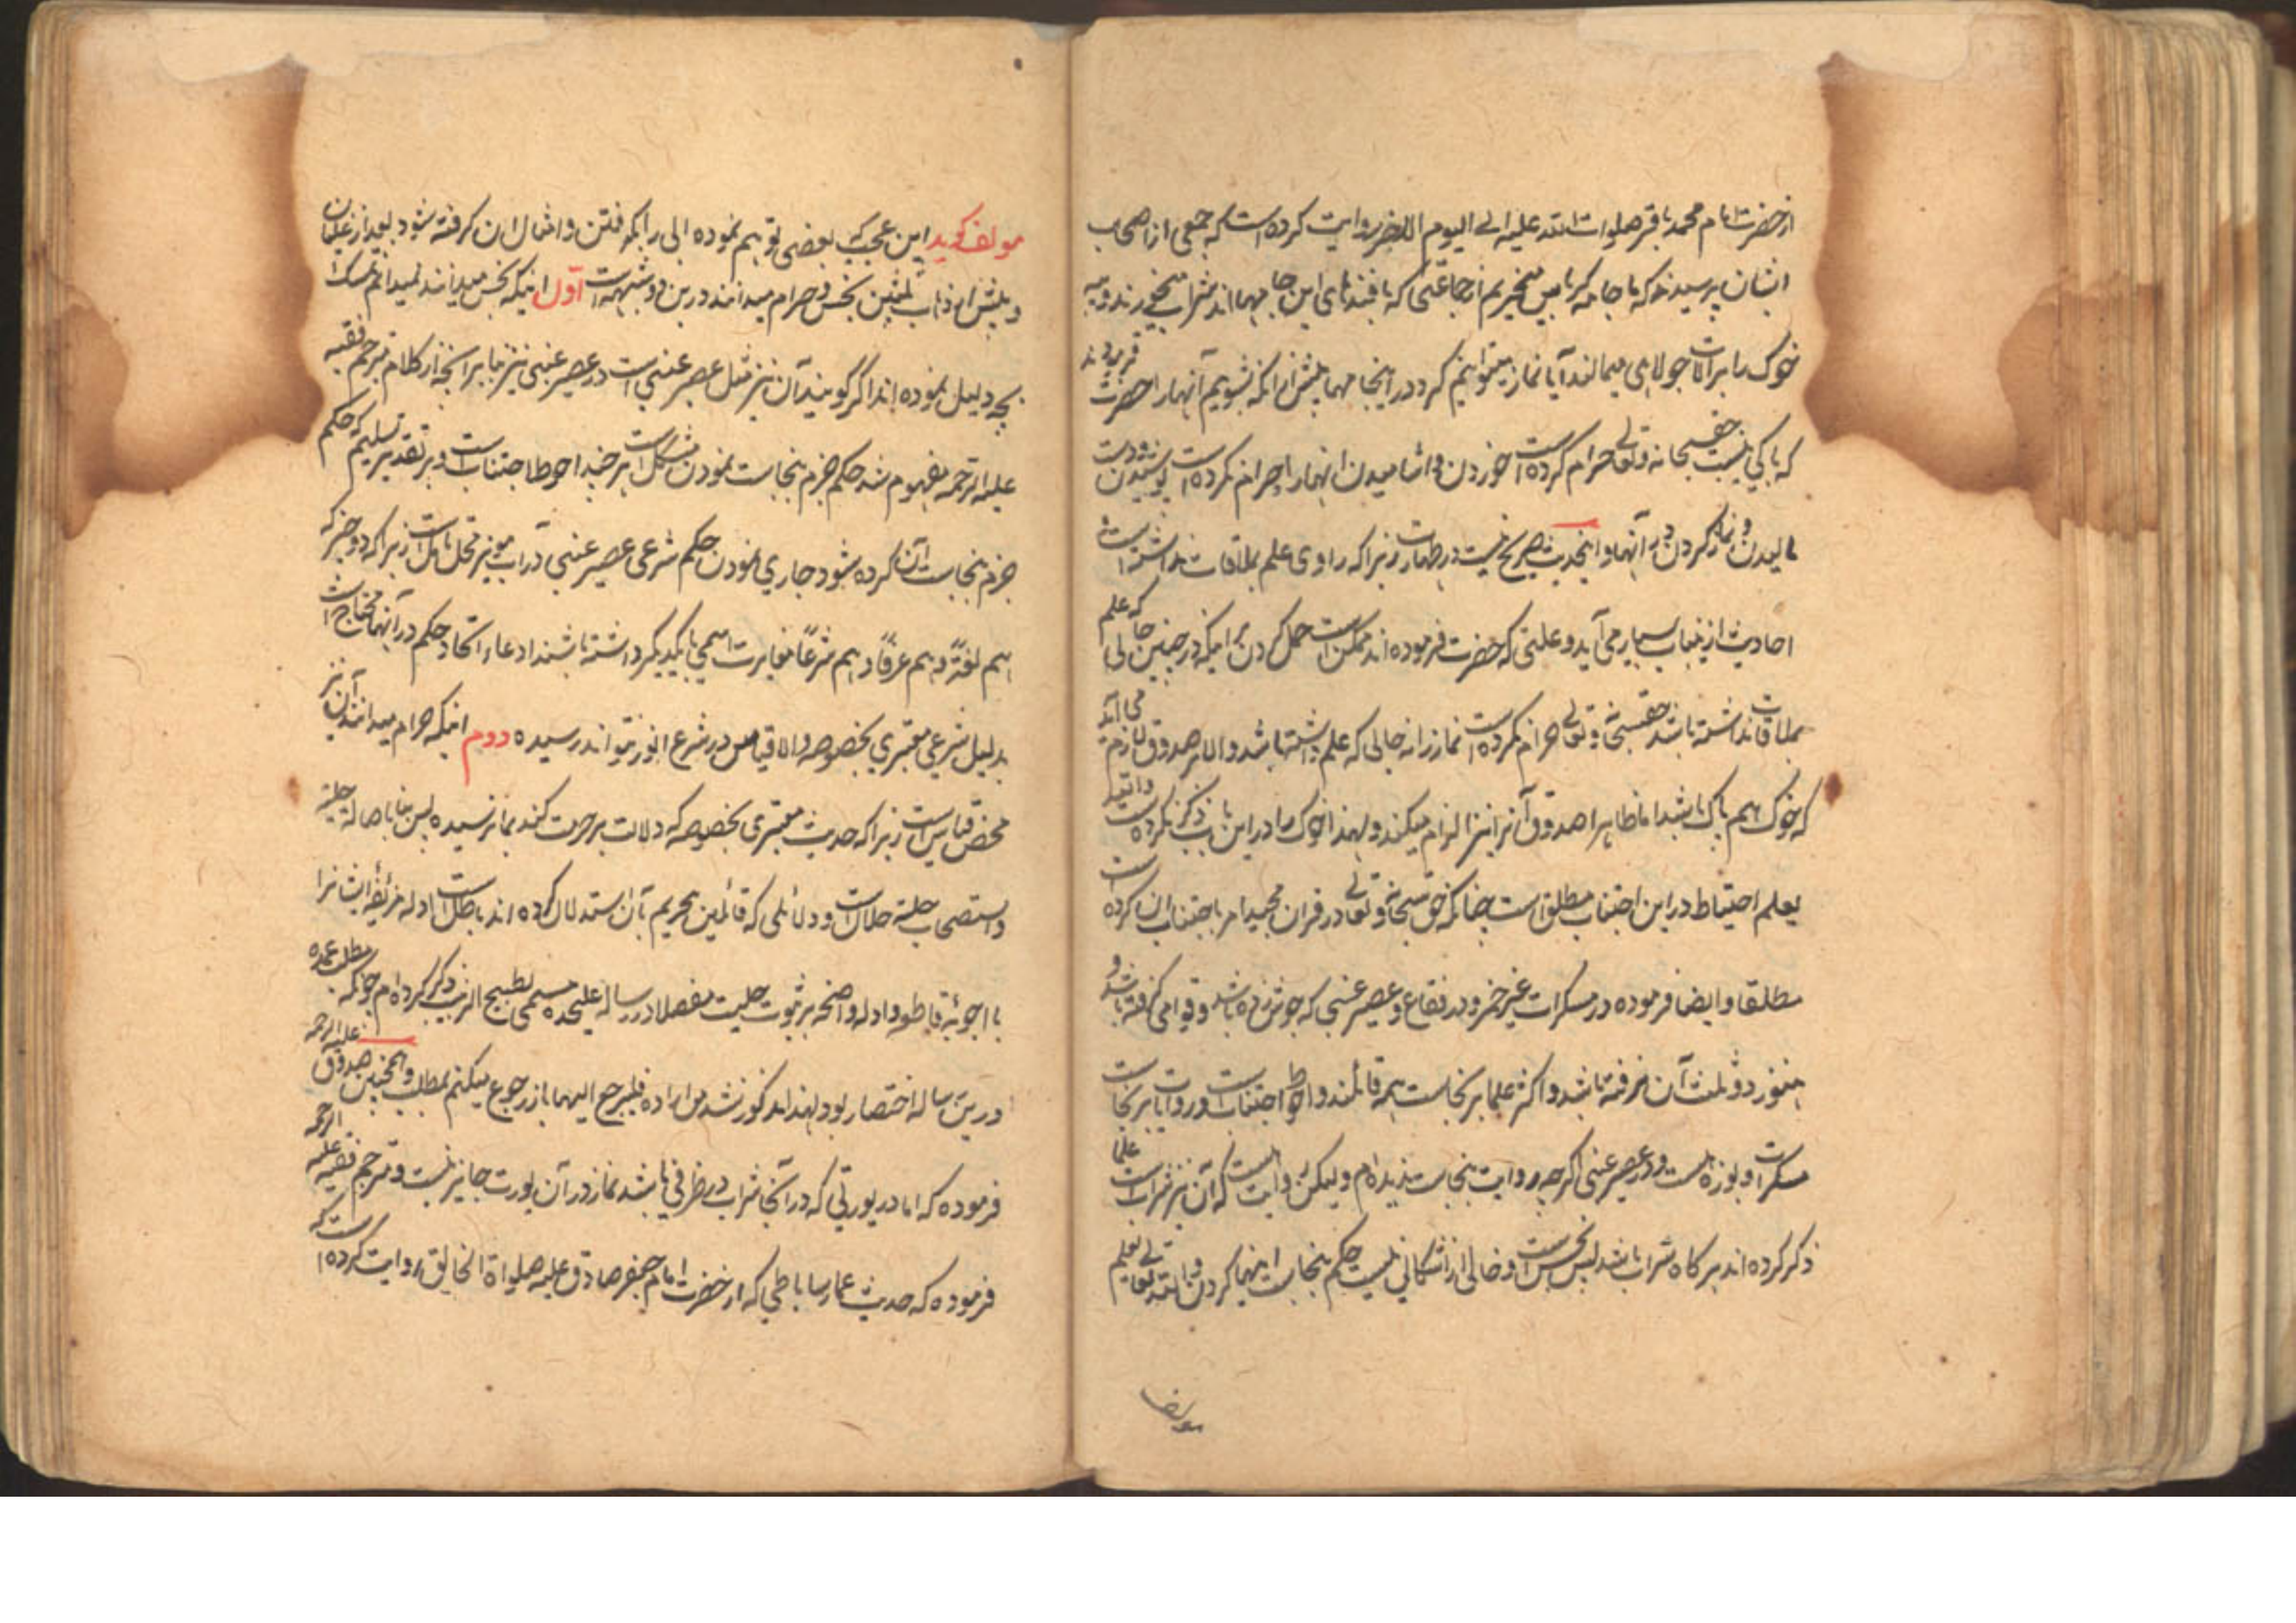 از حضرت امام محمد باقر صلوات الله علیه الی الیوم الاخر روایت کرده است که جمعی از اصحاب
ایشان پرسیدند که ما جامه کرباس میخریم از جماعتی که بافنده‌ای این جامها اند شراب میخورند و پیه
خوک را بر آلات جولاهی میمالند آیا نماز میتوانیم کرد در اینجا مها پیش از انکه بشوییم آنها را حضرت فرمودند
که باکی نیست حق سبحانه وتعالی حرام کرده است خوردن و اشامیدن انهارا و حرام نکرده است پوشیدن
مالیدن و نماز کردن در آنها و اینحدیث صریح نیست در طهارت زیرا که راوی علم بملاقات نداشته است
احادیث ازینباب بسیار می آید و علتی که حضرت فرموده اند ممکن است حمل کردن بر اینکه در چنین حالی که علم
بملاقات نداشته باشد حق سبحانه وتعالی حرام نکرده است نماز را نه حالی که علم داشته باشد والا بر صدوق لازم می آید
که خوک هم پاک باشد اما ظاهرا صدوق آنرا نیز الزام میکند و لهذا خوک را در این باب ذکر نکرده است والله
یعلم احتیاط در این اجتناب مطلق است چنانکه حق سبحانه وتعالی در قران مجید امر باجتناب ان کرده است
مطلقا و ایضا فرموده در مسکرات غیر خمر و در فقاع و عصیر عنبی که جوش زده باشد و قوامی نگرفته باشد و
هنوز دو ثلث آن نرفته باشد و اکثر علما بر نجاست همه قائلند و احوط اجتناب است و روایات بر نجاست
مسکرات و بوزه هست و در عصیر عنبی اگرچه روایت نجاست ندیده‌ام ولیکن روایت هست که آن نیز شراب است علما
ذکر کرده اند هر کاه شراب باشد پس نجس است و خالی از اشکالی نیست حکم بنجاست اینها کردن والله تعالی یعلم
مولف کوید این عجبست که بعضی توهم نموده الی را بکه فتن و امثال ان کرفته شود بعد از غلیان
و پیش از ذهاب ثلثین نجس و حرام میدانند درین دو شبهه است اول اینکه نجس میدانند نمیدانم تمسک
بچه دلیل نموده اند اگر گویند آن نیز مثل عصیر عنبی است در عصیر عنبی نیز بنا بر انچه از کلام مترجم فقیه
علیه الرحمه مفهوم شد حکم جزم بنجاست نمودن مشکل است هر چند احوط اجتناب است و بر تقدیر تسلیم که حکم
جزم بنجاست آن کرده شود جاری نمودن حکم شرعی عصیر عنبی در آب مویز محل تامل است زیرا که دو چیز که
هم لغةً و هم عرفاً و هم شرعاً مغایرت اسمی با یکدیگر داشته باشند ادعاء اتحاد حکم در آنها محتاج است
بدلیل شرعی معتبری بخصوصه والا قیاس در شرع انور نمیتواند رسیده دوم اینکه حرام میدانند آن نیز
محض قیاس است زیرا که حدیث معتبری بخصوصه که دلالت بر حرمت کند بما نرسیده پس بنا باصالة حلیة
و استصحاب حلیة حلال است و دلائلی که قائلین بتحریم بآن استدلال کرده اند باطل است ادله مزیفه ایشانرا
با اجوبۀ قاطعه و ادله واضحه بر ثبوت حلیت مفصلا در رساله علیحده مسمی بطبیخ الزبیب ذکر کرده‌ام چونکه مطلب عمده
درین رساله اختصار بود لهذا مذکور نشد من اراده فلیرجع الیها باز رجوع میکنیم بمطلب و همچنین صدوق علیه الرحمه
فرموده که اما در یورتی که در آنجا شراب در ظرفی باشد نماز در آن یورت جایز نیست و مترجم فقیه علیه الرحمه
فرموده که حدیث عمار ساباطی که از حضرت امام جعفر صادق علیه صلواة الخالق روایت کرده است که